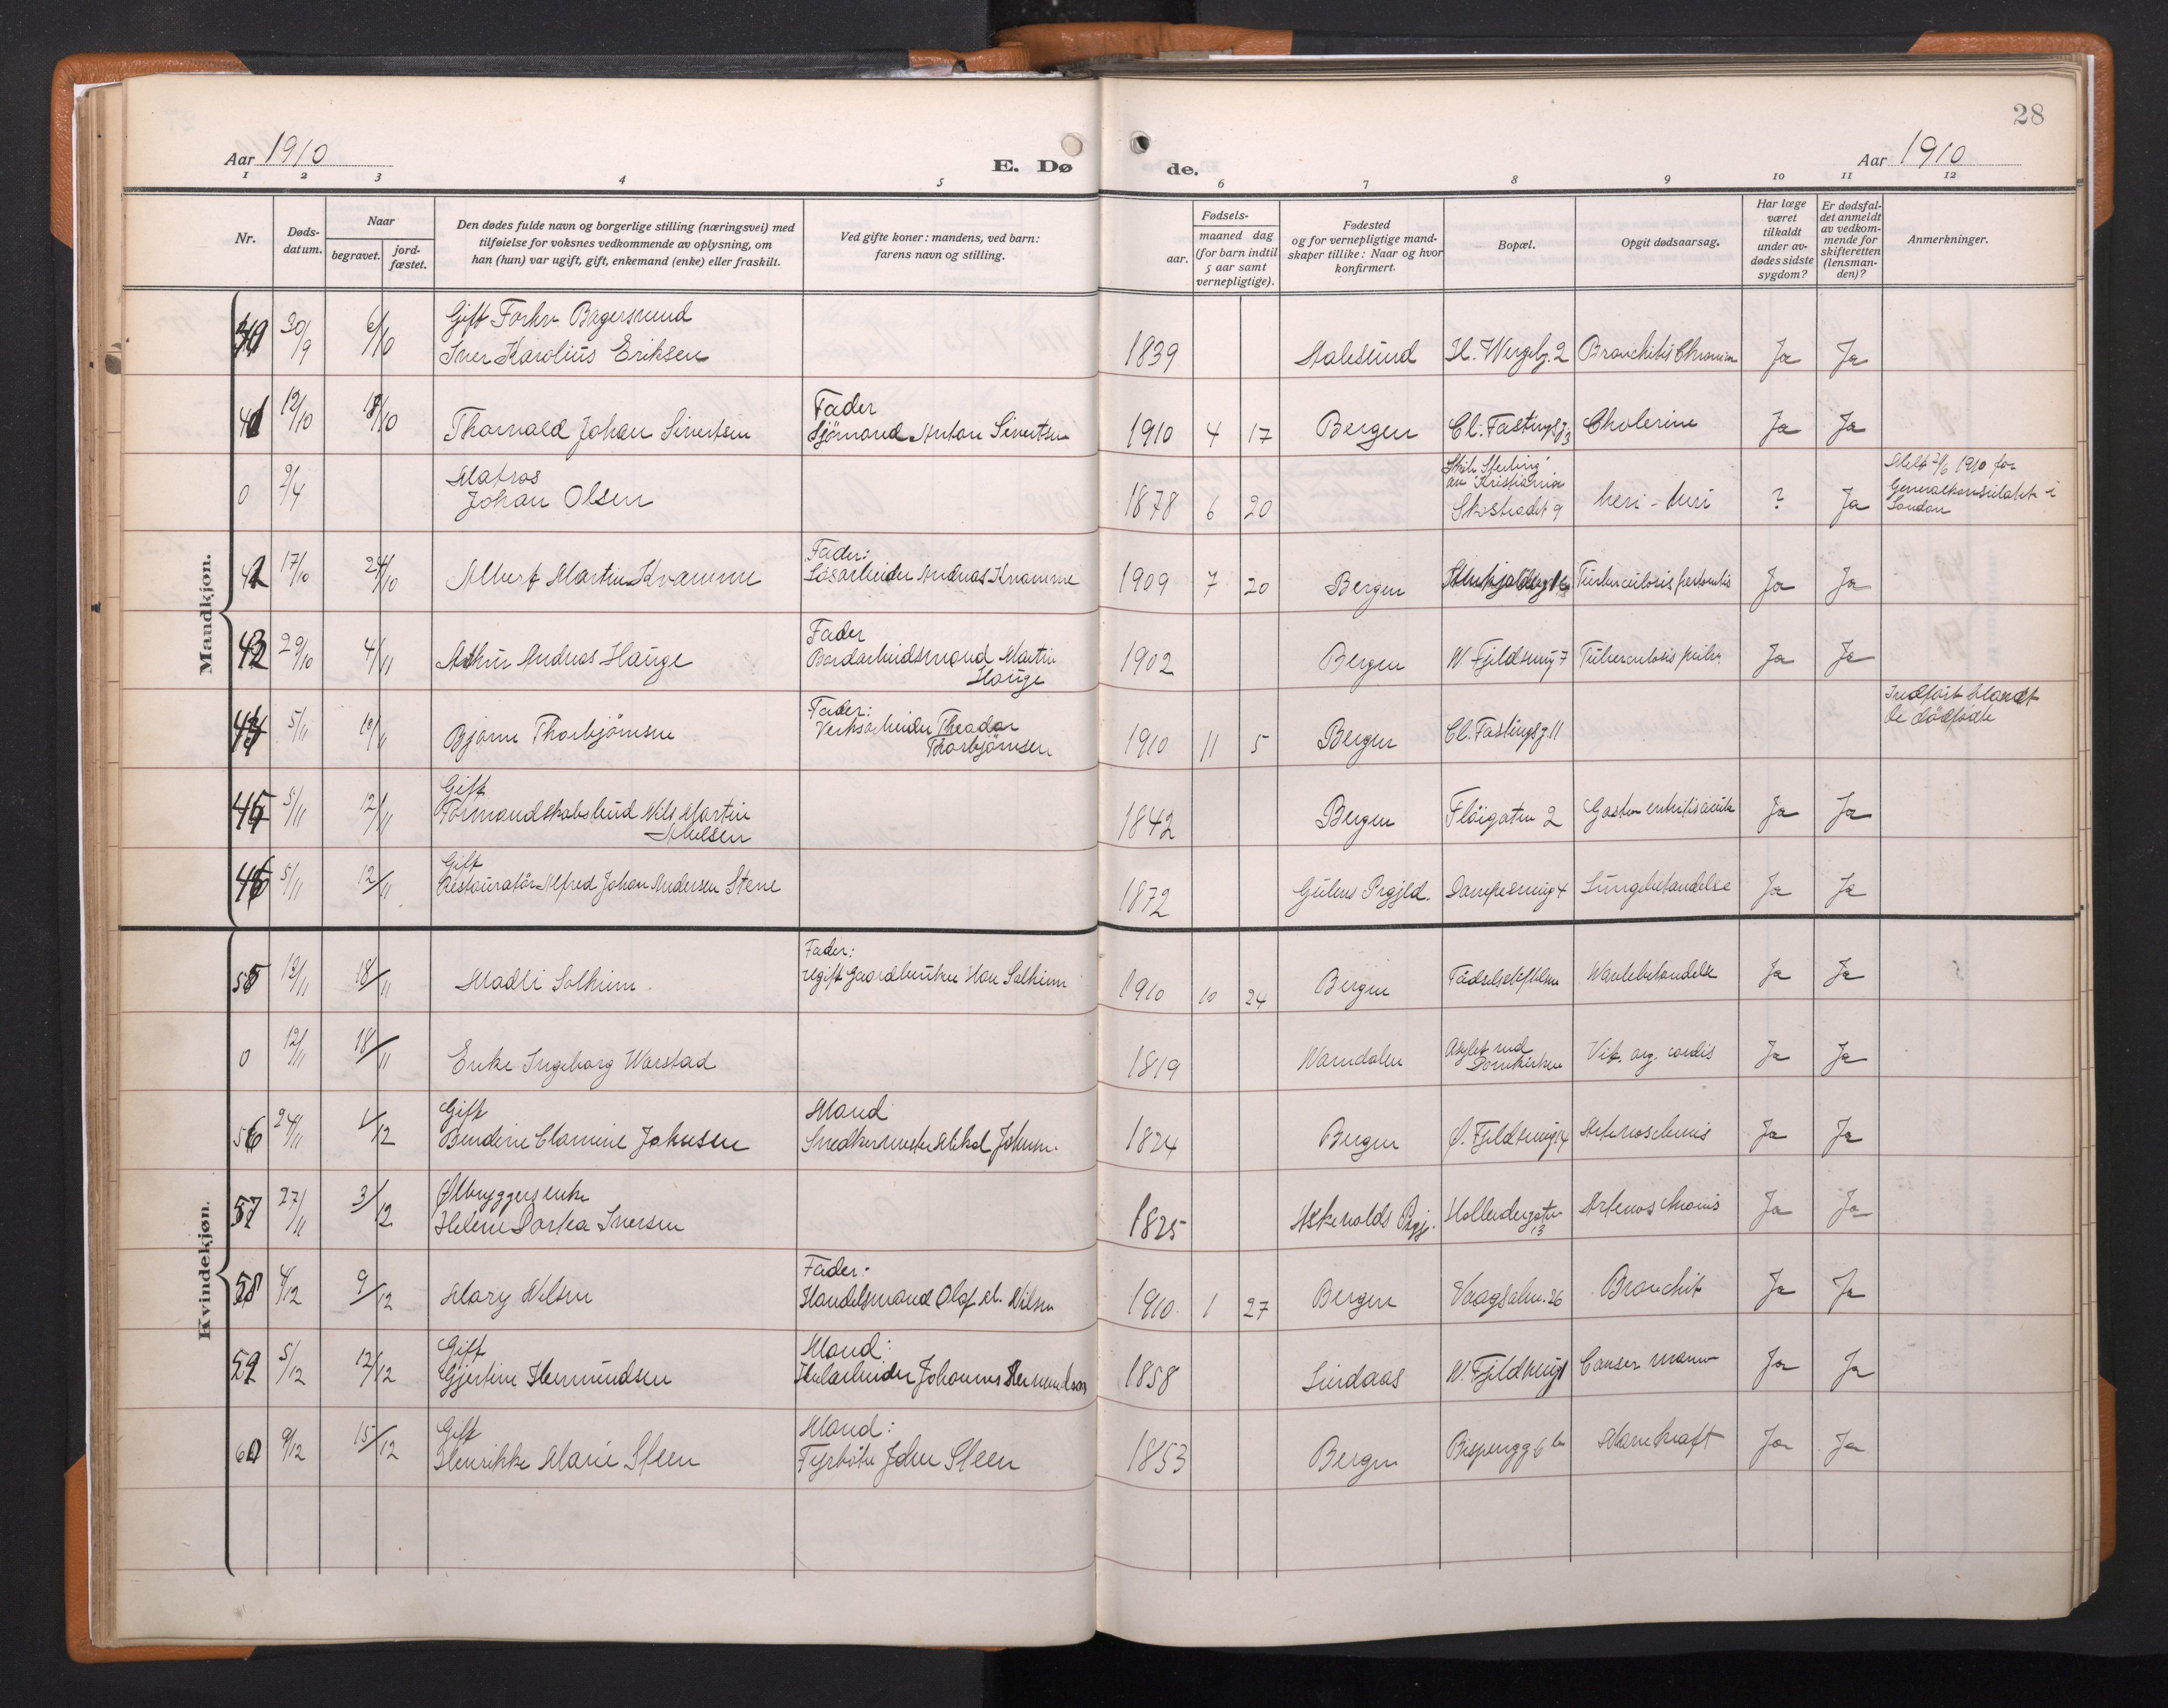 28
Aar 1910
E. Dø de.
Aar 1910
1 2 3 4 5 6 7 8 9 10 11 12
Nr.
Døds-
datum.
Naar
begravet.
jord-
fæstet.
Den dødes fulde navn og borgerlige stilling (næringsvei) med
tilføielse for voksnes vedkommende av oplysning, om
han (hun) var ugift, gift, enkemand (enke) eller fraskilt.
Ved gifte koner: mandens, ved barn:
farens navn og stilling.
Fødsels-
aar.
maaned dag
(for barn indtil
5 aar samt
vernepligtige).
Fødested
og for vernepligtige mand-
skaper tillike: Naar og hvor
konfirmert.
Bopæl.
Opgit dødsaarsag.
Har læge
været
tilkaldt
under av-
dødes sidste
sygdom?
Er dødsfal-
det anmeldt
av vedkom-
mende for
skifteretten
(lensman-
den)?
Anmerkninger.
Mandkjøn.
30/9 6/10 Gift Forhv. Bagersvend
Iver Karolius Eriksen 1839 Aalesund H. Wergelg. 2 Bronchitis Chronica Ja Ja
41 13/10 18/10 Thorvald Johan Sivertsen
Fader
Sjömand Anton Sivertsen 1910 4 17 Bergen Cl. Fastingsg 3 Cholerine Ja Ja
0 2/4 Matros
Johan Olsen 1878 6 20
Skib "Sterling"
av Kristiania
? Ja
Meldt 2/6 1910 fra
Generalkonsulatet i
London
42 17/10 24/10 Albert Martin Kvamme
Fader:
Løsarbeider Andreas Kvamme 1909 7 20 Bergen Ja Ja
43 29/10 4/11 Arthur Andreas Hauge
Fader
Bordarbeidsmand Martin
Hauge 1902 Bergen N Fjeldsmug 7 Tuberculosis pulm. Ja Ja
44 5/11 10/11 Bjarne Thorbjörnsen
Fader:
Verksarbeider Theodor
Thorbjörnsen 1910 11 5 Bergen Cl. Fastingsg. 11
Indført blandt
de dödfödte
45 5/11 12/11 Gift
Formandskabsbud Nils Martin
Nielsen 1842 Bergen Flöigaten 2 Gastro enteritis acuta Ja Ja
46 5/11 12/11 Gift
Restauratör Alfred Johan Andersen Stene 1872 Gulens Prgjld. Dampesmug 4 Lungebetændelse Ja Ja
Kvindekjøn.
55 13/11 18/11 Madli Solheim
Fader:
ugift Gaardbruker Hans Solheim 1910 10 24 Bergen Födselsstiftelsen Navlebetændelse Ja Ja
0 12/11 18/11 Enke Ingeborg Warstad 1819 Namdalen
Asylet ved
Domkirken Vit. org. cordis Ja Ja
56 24/11 1/12 Gift
Bendine Clamine Johnsen
Mand
Snedkermester Mikal Johnsen 1824 Bergen Ö. Fjeldsmug 14 Arterioschlerosis Ja Ja
57 27/11 3/12 Ølbryggers enke
Helene Dortea Iversen 1825 Askevolds Prgj. Hollendergaten
13 Ja Ja
58 4/12 9/12 Mary Nilsen
Fader:
Handelsmand Olaf M. Nilsen 1910 1 27 Bergen Vaagsalm. 26 Bronchit Ja Ja
59 5/12 12/12 Gift
Gjertine Hermundsen
Mand:
Johannes Hermundsen 1858 Lindaas N. Fjeldsmug 1 Cancer mamm Ja Ja
60 9/12 15/12 Gift
Henrikke Marie Steen
Mand:
Fyrböter John Steen 1853 Bergen Bispengg 6 b Mavekræft Ja Ja